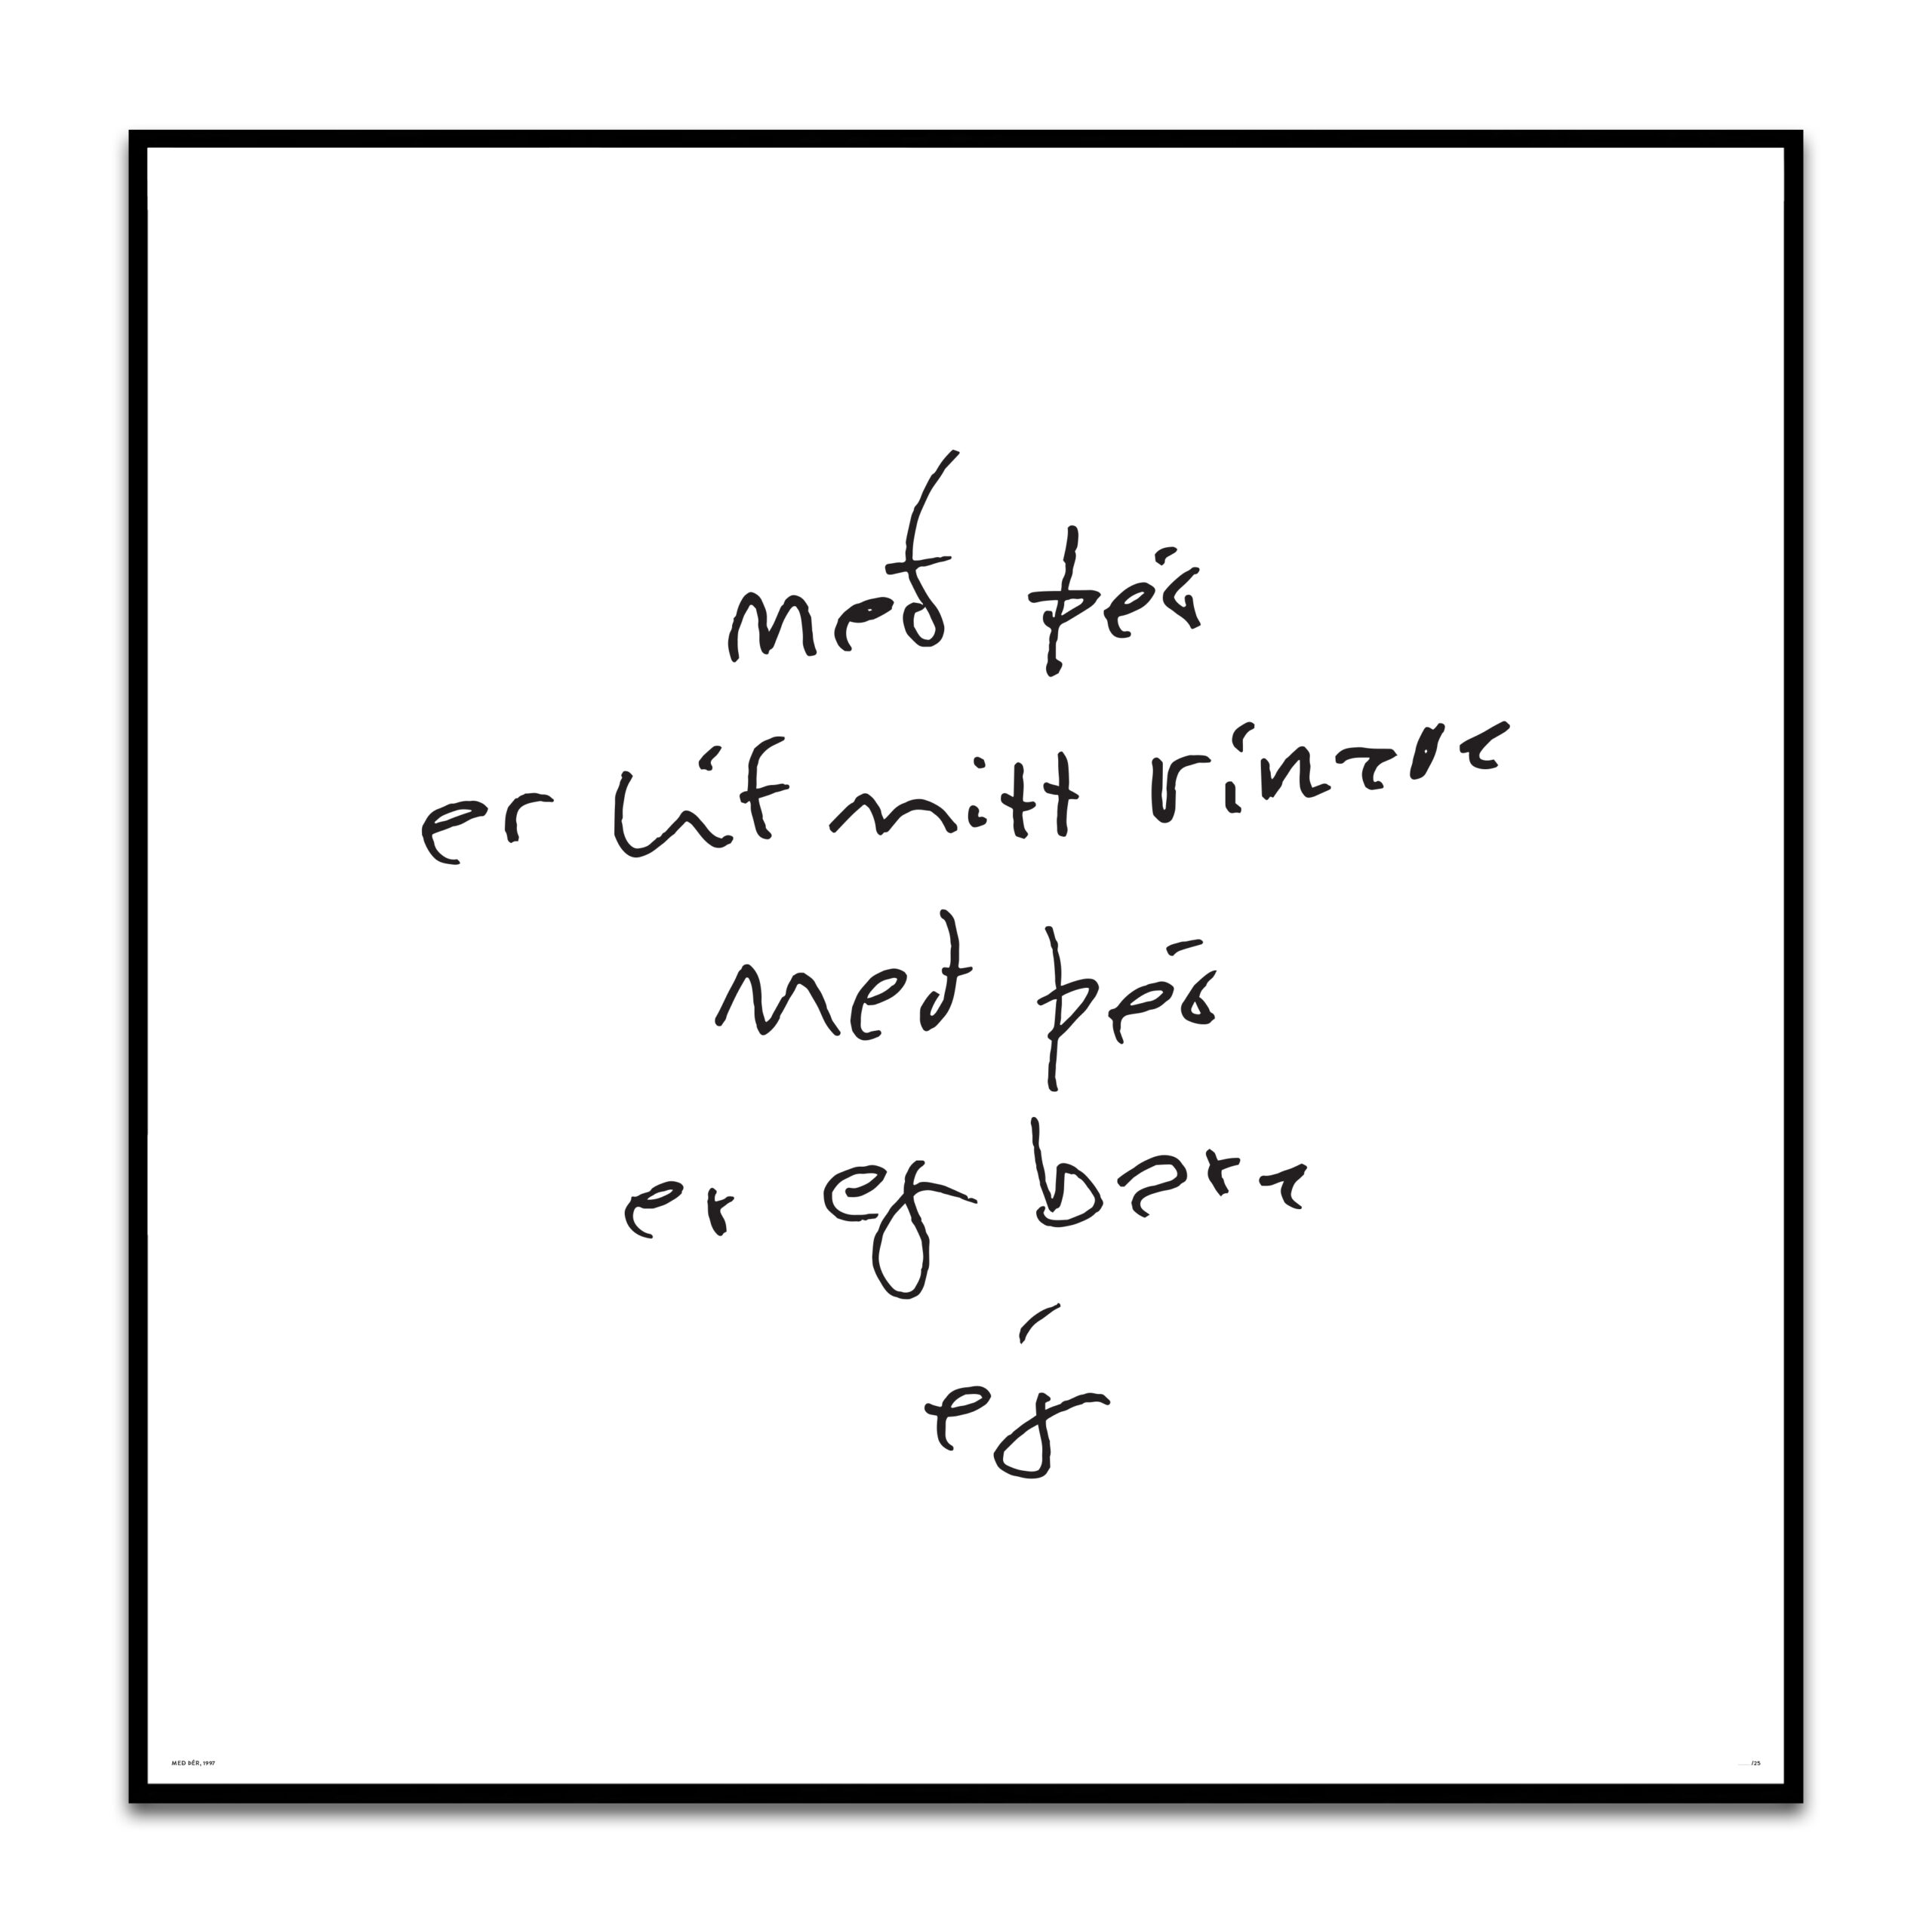 með þér
er líf mitt ríkara
með þér
er eg bara
ég
MEÐ ÞÉR, 1997
....... /25